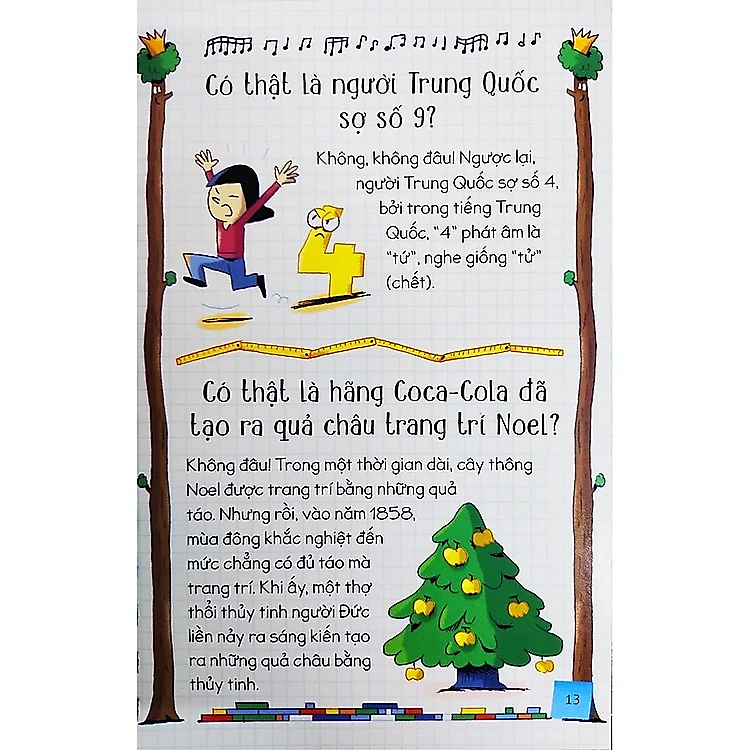 Có thật là người Trung Quốc
sợ số 9?
Không, không đâu! Ngược lại,
người Trung Quốc sợ số 4,
bởi trong tiếng Trung
Quốc, "4" phát âm là
"tứ", nghe giống "tử"
(chết).
4
Có thật là hãng Coca-Cola đã
tạo ra quả châu trang trí Noel?
Không đâu! Trong một thời gian dài, cây thông
Noel được trang trí bằng những quả
táo. Nhưng rồi, vào năm 1858,
mùa đông khắc nghiệt đến
mức chẳng có đủ táo mà
trang trí. Khi ấy, một thợ
thổi thủy tinh người Đức
liền nảy ra sáng kiến tạo
ra những quả châu bằng
thủy tinh.
13